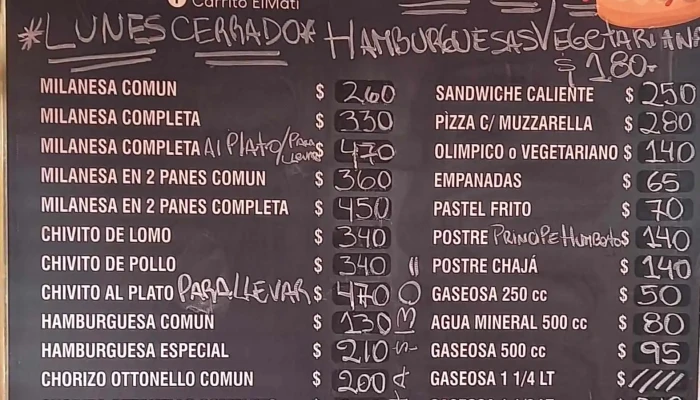 Carrito ElMati
*LUNES CERRADO*
HAMBURGUESAS VEGETARIANA
$180-
MILANESA COMUN $ 260
MILANESA COMPLETA $ 330
MILANESA COMPLETA Al Plato/Para llevar $ 470
MILANESA EN 2 PANES COMUN $ 360
MILANESA EN 2 PANES COMPLETA $ 450
CHIVITO DE LOMO $ 340
CHIVITO DE POLLO $ 340
CHIVITO AL PLATO PARA LLEVAR $ 470
HAMBURGUESA COMUN $ 130
HAMBURGUESA ESPECIAL $ 210
CHORIZO OTTONELLO COMUN $ 200
SANDWICHE CALIENTE $ 250
PÌZZA C/ MUZZARELLA $ 280
OLIMPICO o VEGETARIANO $ 140
EMPANADAS $ 65
PASTEL FRITO $ 70
POSTRE PRINCIPE Humberto $ 140
POSTRE CHAJÁ $ 140
GASEOSA 250 cc $ 50
AGUA MINERAL 500 cc $ 80
GASEOSA 500 cc $ 95
GASEOSA 1 1/4 LT $